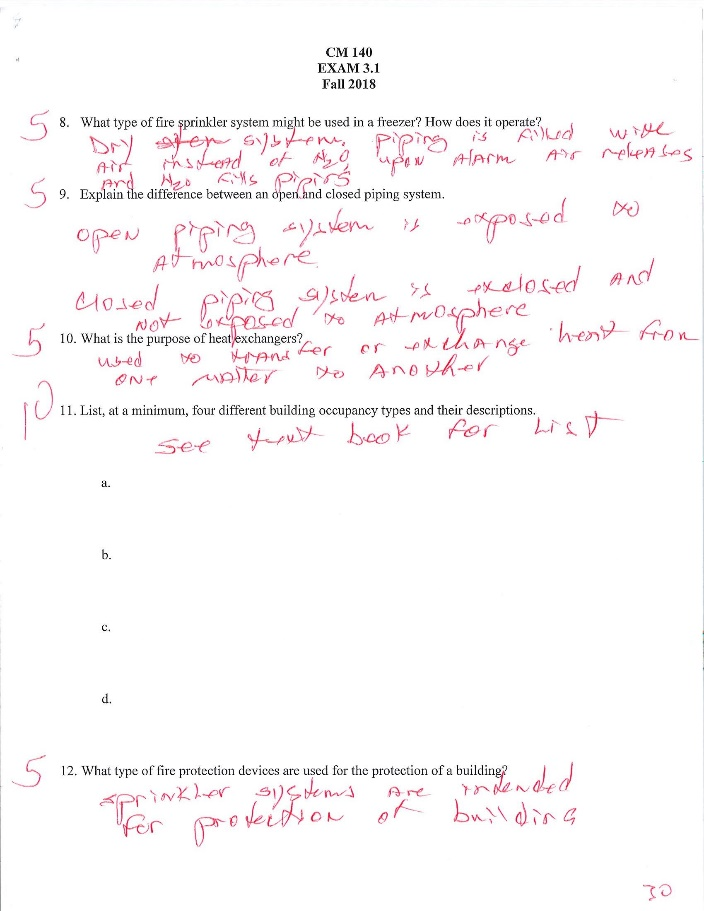 CM 140
EXAM 3.1
Fall 2018
5
8. What type of fire sprinkler system might be used in a freezer? How does it operate?
Dry system. piping is filled with
Air instead of N2O, upon Alarm Air releases
And N2O fills piping
5
9. Explain the difference between an open and closed piping system.
open piping system is exposed to
Atmosphere.
Closed piping system is enclosed And
NOT exposed to Atmosphere
5
10. What is the purpose of heat exchangers?
used to transfer or exchange heat from
one matter to Another
10
11. List, at a minimum, four different building occupancy types and their descriptions.
See text book for List
a.
b.
c.
d.
5
12. What type of fire protection devices are used for the protection of a building?
sprinkler systems are intended
for protection of building
30